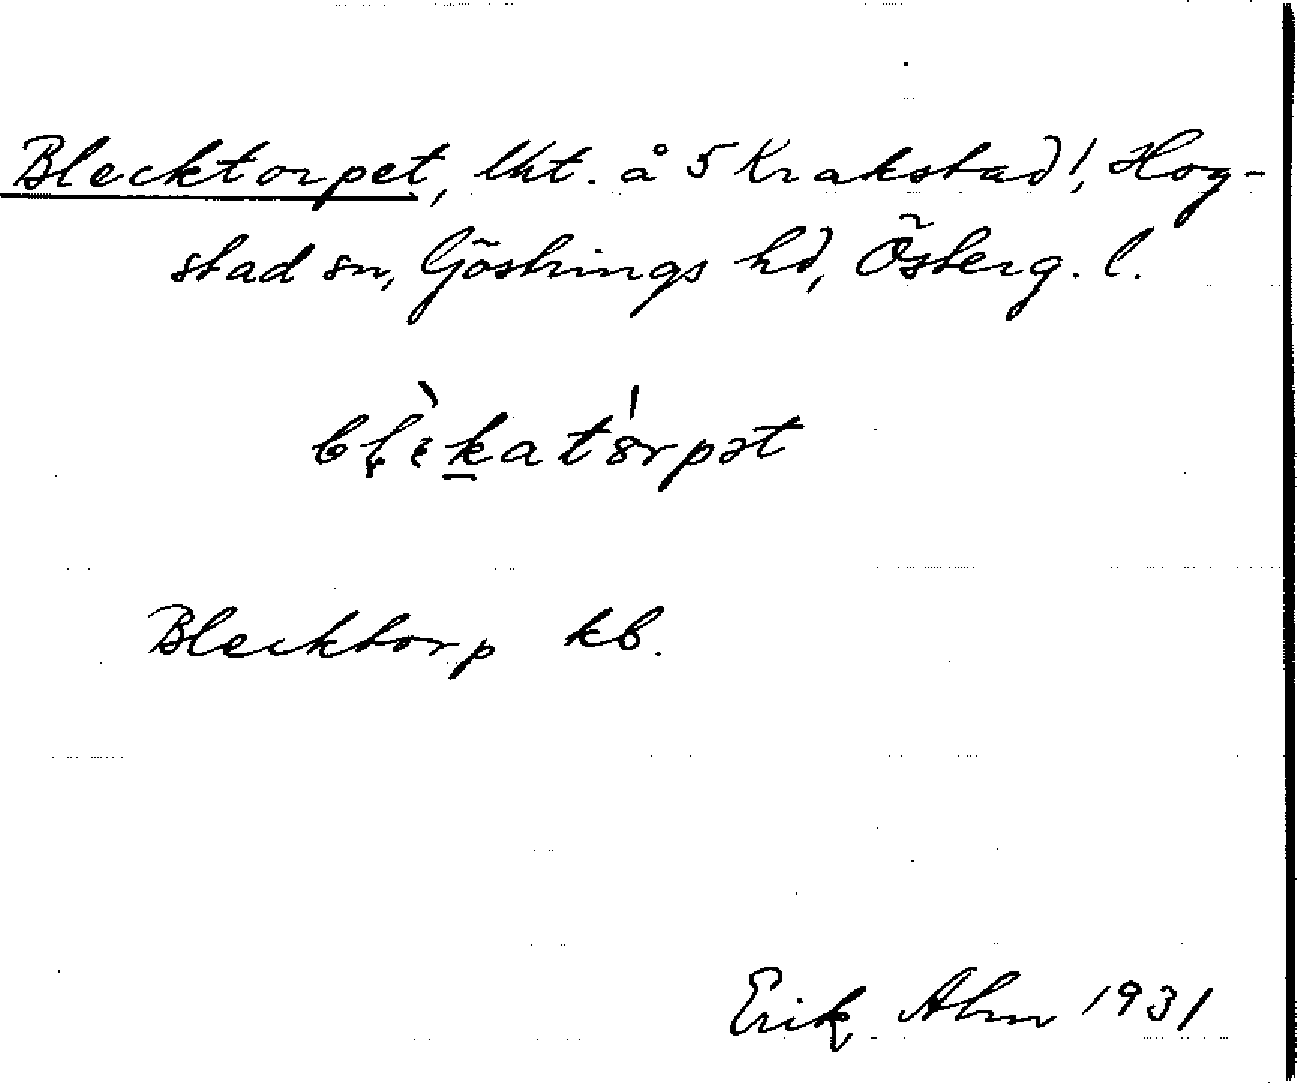 Blecktorpet, lht. å 5 Krakstad!, Hog-
stad sn, Göstrings hd, Österg. l.
Blecktorp kb.
Erik Ahm 1931